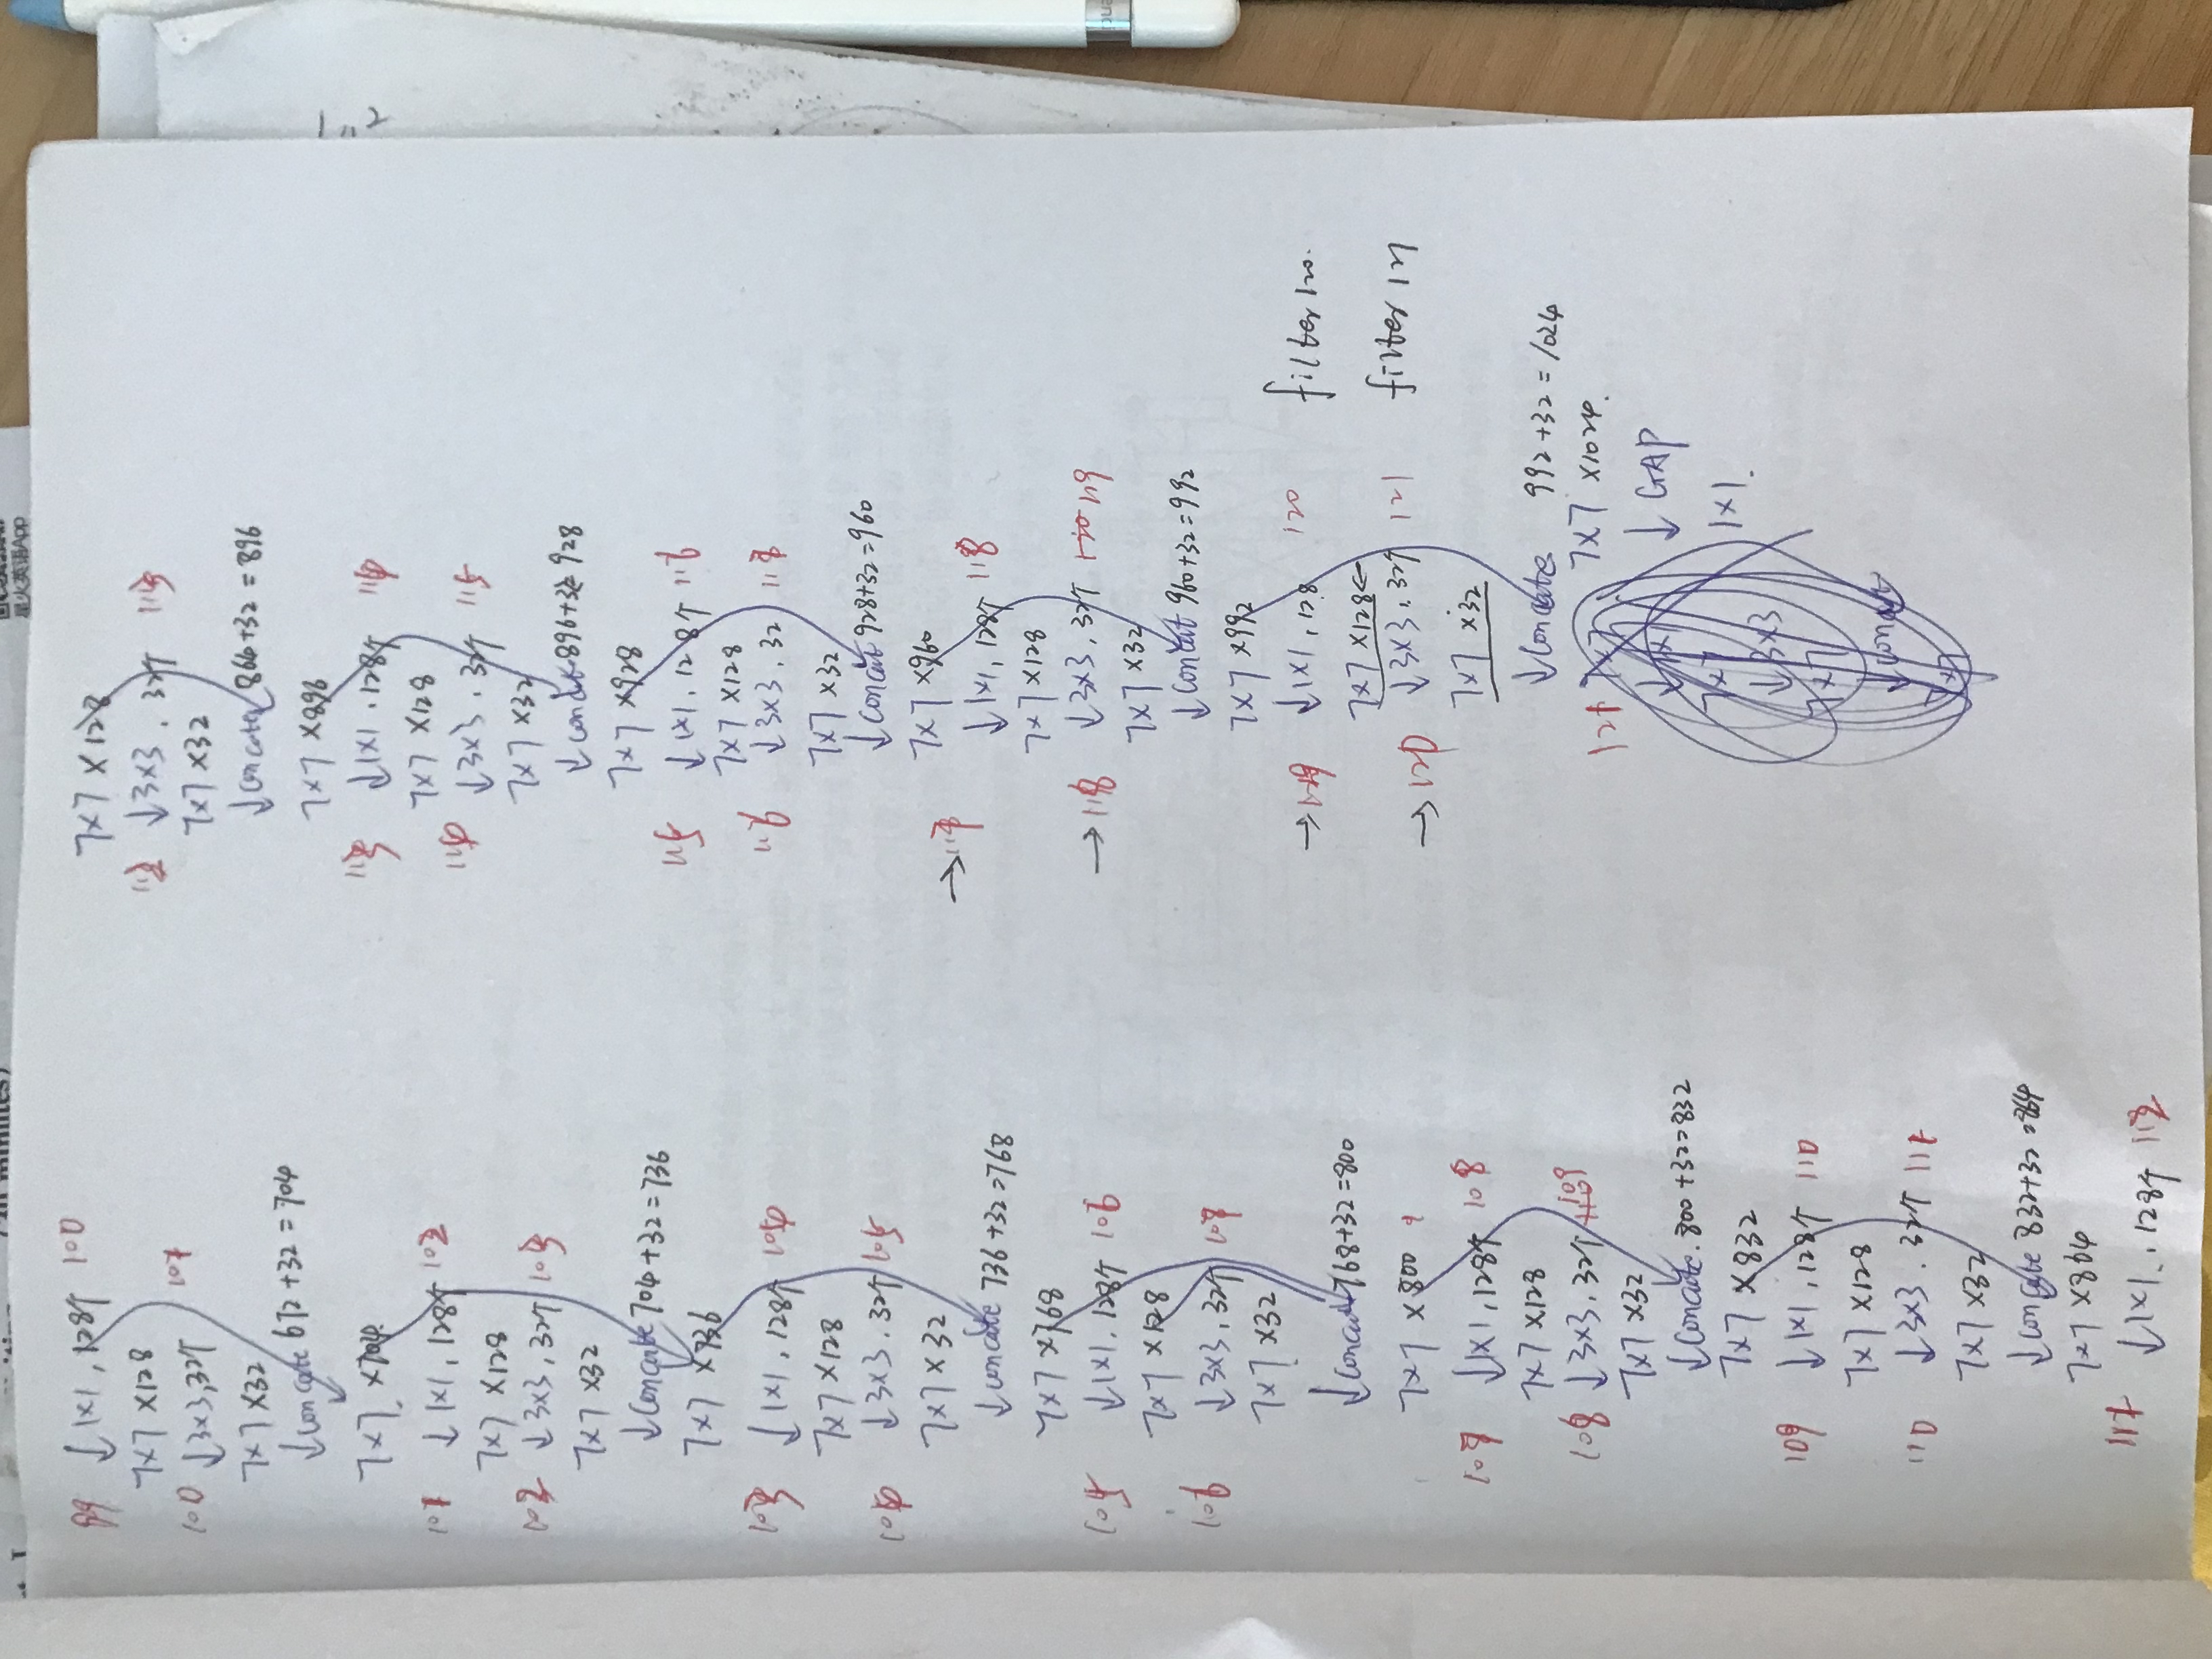 99 ↓1×1, 128个 100
7×7×128
100 ↓3×3, 32个 101
7×7×32
↓concate 672+32=704
7×7×704
101 ↓1×1, 128个 102
7×7×128
102 ↓3×3, 32个 103
7×7×32
↓concate 704+32=736
7×7×736
103 ↓1×1, 128个 104
7×7×128
104 ↓3×3, 32个 105
7×7×32
↓concate 736+32=768
7×7×768
105 ↓1×1, 128个 106
7×7×128
106 ↓3×3, 32个 107
7×7×32
↓concate 768+32=800
7×7×800
107 ↓1×1, 128个 108
7×7×128
108 ↓3×3, 32个 109
7×7×32
↓concate 800+32=832
7×7×832
109 ↓1×1, 128个 110
7×7×128
110 ↓3×3, 32个 111
7×7×32
↓concate 832+32=864
7×7×864
111 ↓1×1, 128个 112
7×7×128
112 ↓3×3, 32个 113
7×7×32
↓concate 864+32=896
7×7×896
113 ↓1×1, 128个 114
7×7×128
114 ↓3×3, 32个 115
7×7×32
↓concate 896+32=928
7×7×928
115 ↓1×1, 128个 116
7×7×128
116 ↓3×3, 32 117
7×7×32
↓concate 928+32=960
7×7×960
→117 ↓1×1, 128个 118
7×7×128
→118 ↓3×3, 32个 119
7×7×32
↓concat 960+32=992
7×7×992
→119 ↓1×1, 128 120 filter 120.
7×7×128←
→120 ↓3×3, 32个 121 filter 121
7×7×32
↓concate 992+32=1024
121 7×7×1024.
↓GAP
1×1.
=2
星火英语App